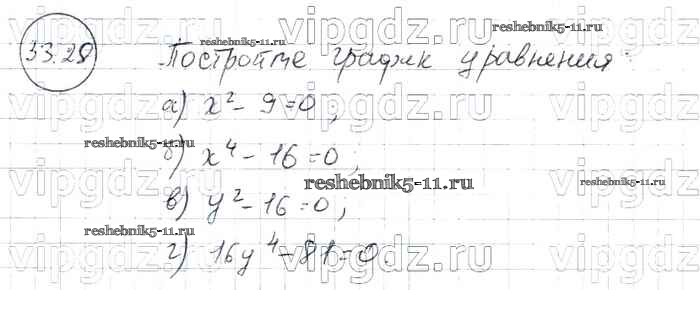 33.28
Постройте график уравнения:
а) x² - 9 = 0;
б) x⁴ - 16 = 0;
в) y² - 16 = 0;
г) 16y⁴ - 81 = 0.
vipgdz.ru vipgdz.ru vipgdz.ru
reshebnik5-11.ru reshebnik5-11.ru
vipgdz.ru vipgdz.ru vipgdz.ru
reshebnik5-11.ru
vipgdz.ru vipgdz.ru vipgdz.ru
reshebnik5-11.ru reshebnik5-11.ru
reshebnik5-11.ru
vipgdz.ru vipgdz.ru vipgdz.ru